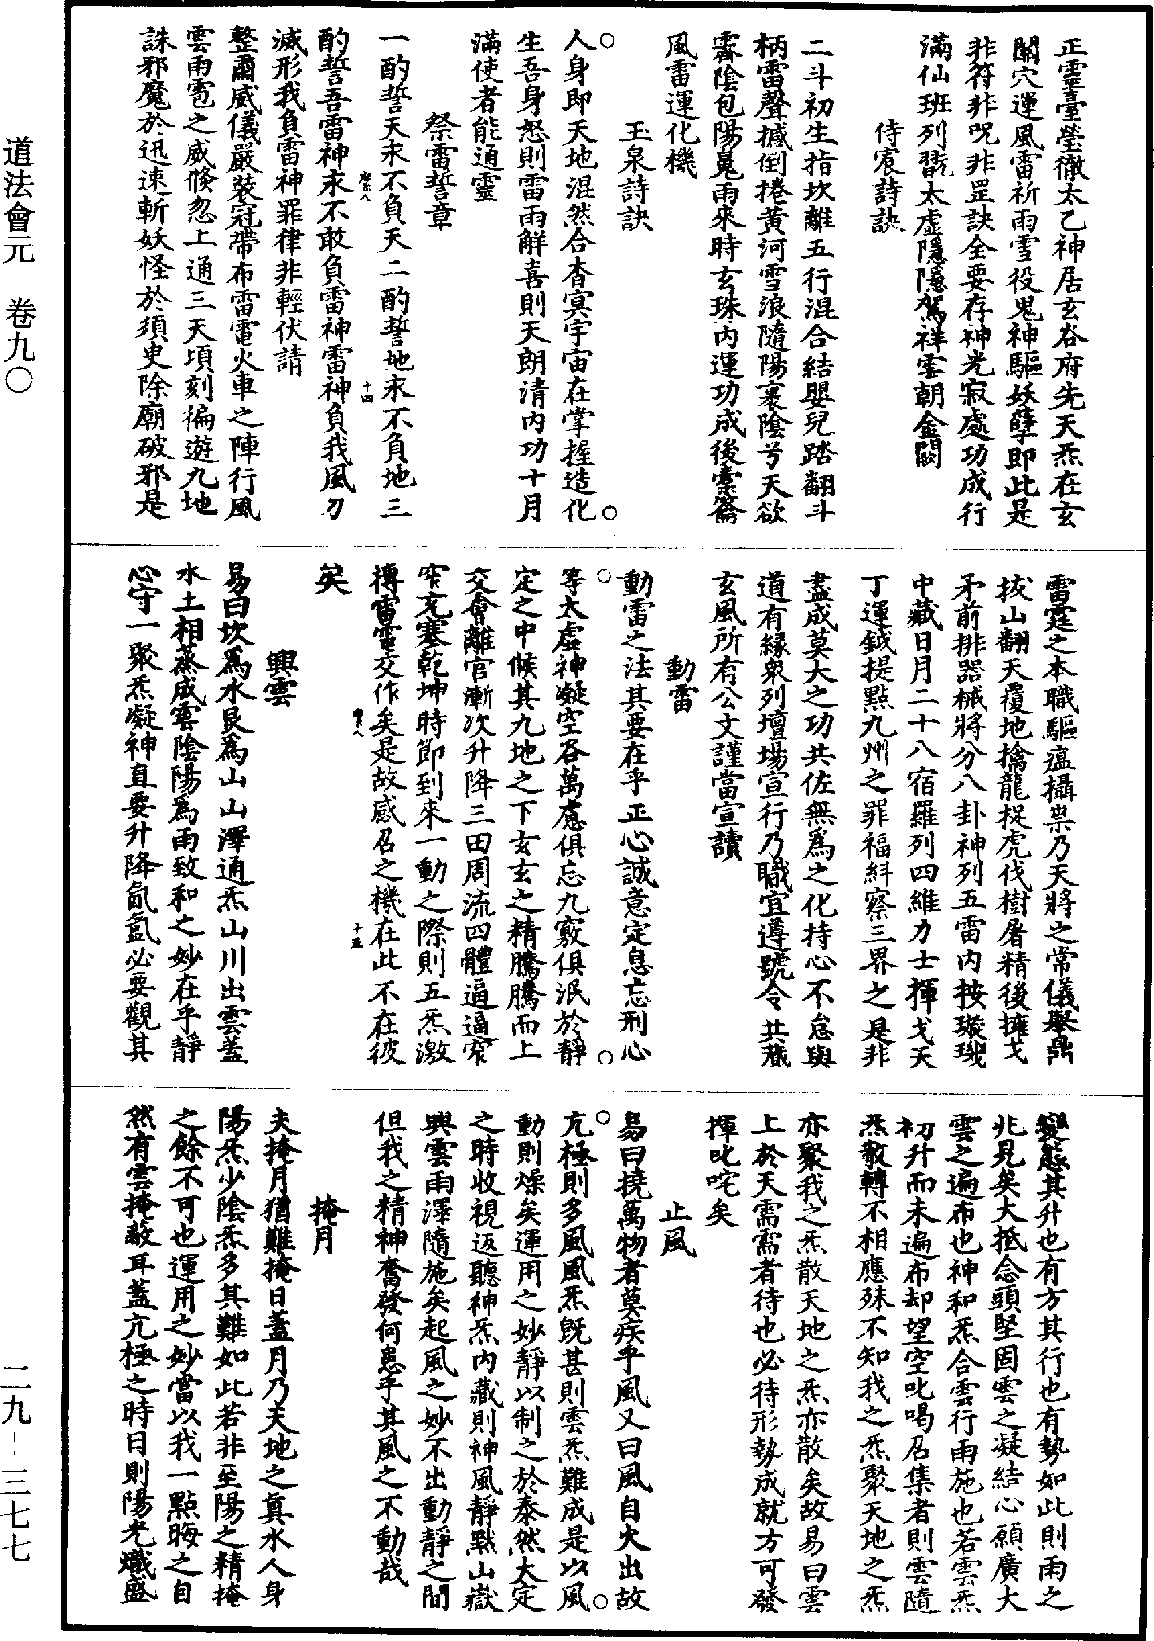 道法會元　卷九〇
二九－三七七
正靈臺瑩徹太乙神居玄谷府先天炁在玄
關穴運風雷祈雨雪役鬼神驅妖孽即此是
非符非呪非罡訣全要存神光寂處功成行
滿仙班列翫太虛隱隱駕祥雲朝金闕
侍宸詩訣
二斗初生指坎離五行混合結嬰兒踏翻斗
柄雷聲撼倒捲黃河雪浪隨陽裹陰兮天欲
霽陰包陽鬼雨來時玄珠內運功成後橐籥
風雷運化機
玉泉詩訣
人身即天地混然合杳冥宇宙在掌握造化
生吾身怒則雷雨解喜則天朗清內功十月
滿使者能通靈
祭雷誓章
一酌誓天永不負天二酌誓地永不負地三
酌誓吾雷神永不敢負雷神雷神負我風刀
十四
滅形我負雷神罪律非輕伏請
整肅威儀嚴裝冠帶布雷電火車之陣行風
雲雨雹之威倏忽上通三天頃刻徧遊九地
誅邪魔於迅速斬妖怪於須臾除廟破邪是
雷霆之本職驅瘟攝祟乃天將之常儀舉鼎
拔山翻天覆地擒龍捉虎伐樹屠精後擁戈
矛前排器械將分八卦神列五雷內按璇璣
中藏日月二十八宿羅列四維力士揮戈天
丁運鉞提點九州之罪福糾察三界之是非
盡成莫大之功共佐無為之化持心不怠與
道有緣眾列壇場宣行乃職宜遵號令共藏
玄風所有公文謹當宣讀
動雷
動雷之法其要在乎正心誠意定息忘刑心
等太虛神凝空谷萬慮俱忘九竅俱泯於靜
定之中候其九地之下玄玄之精騰騰而上
交會離宮漸次升降三田周流四體逼逼窄
窄充塞乾坤時節到來一動之際則五炁激
搏雷電交作矣是故感召之機在此不在彼
十五
矣
興雲
易曰坎為水艮為山山澤通炁山川出雲蓋
水土相蒸成雲陰陽為雨致和之妙在乎靜
心守一聚炁凝神直要升降氤氳必要觀其
變態其升也有方其行也有勢如此則雨之
兆見矣大抵念頭堅固雲之凝結心願廣大
雲之遍布也神和炁合雲行雨施也若雲炁
初升而未遍布却望空叱喝召集者則雲隨
炁散轉不相應殊不知我之炁聚天地之炁
亦聚我之炁散天地之炁亦散矣故易曰雲
上於天需需者待也必待形勢成就方可發
揮叱咤矣
止風
易曰撓萬物者莫疾乎風又曰風自火出故
亢極則多風風炁既甚則雲炁難成是以風
動則燥矣運用之妙靜以制之於泰然大定
之時收視返聽神炁內藏則神風靜默山嶽
興雲雨澤隨施矣起風之妙不出動靜之間
但我之精神奮發何患乎其風之不動哉
掩月
夫掩月猶難掩日蓋月乃天地之真水人身
陽炁少陰炁多其難如此若非至陽之精掩
之餘不可也運用之妙當以我一點晦之自
然有雲掩蔽耳蓋亢極之時日則陽光熾盛